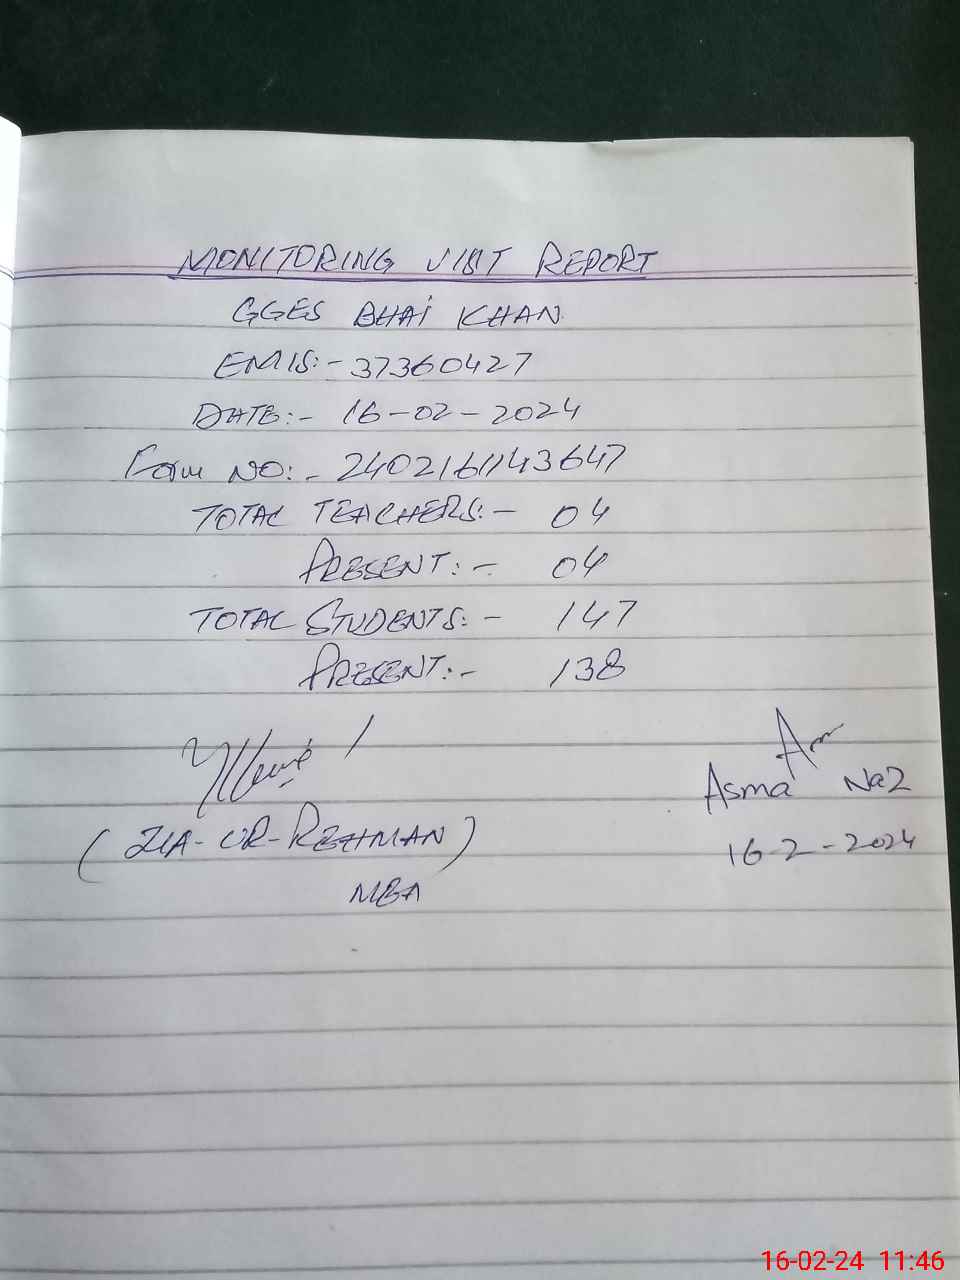 MONITORING VISIT REPORT
GGES BHAI KHAN
EMIS:- 37360427
DATE:- 16-02-2024
Form NO:- 2402161143647
TOTAL TEACHERS:- 04
PRESENT:- 04
TOTAL STUDENTS:- 147
PRESENT:- 138
Asma Naz
(ZIA-UR-REHMAN)
16-2-2024
MEA
16-02-24 11:46